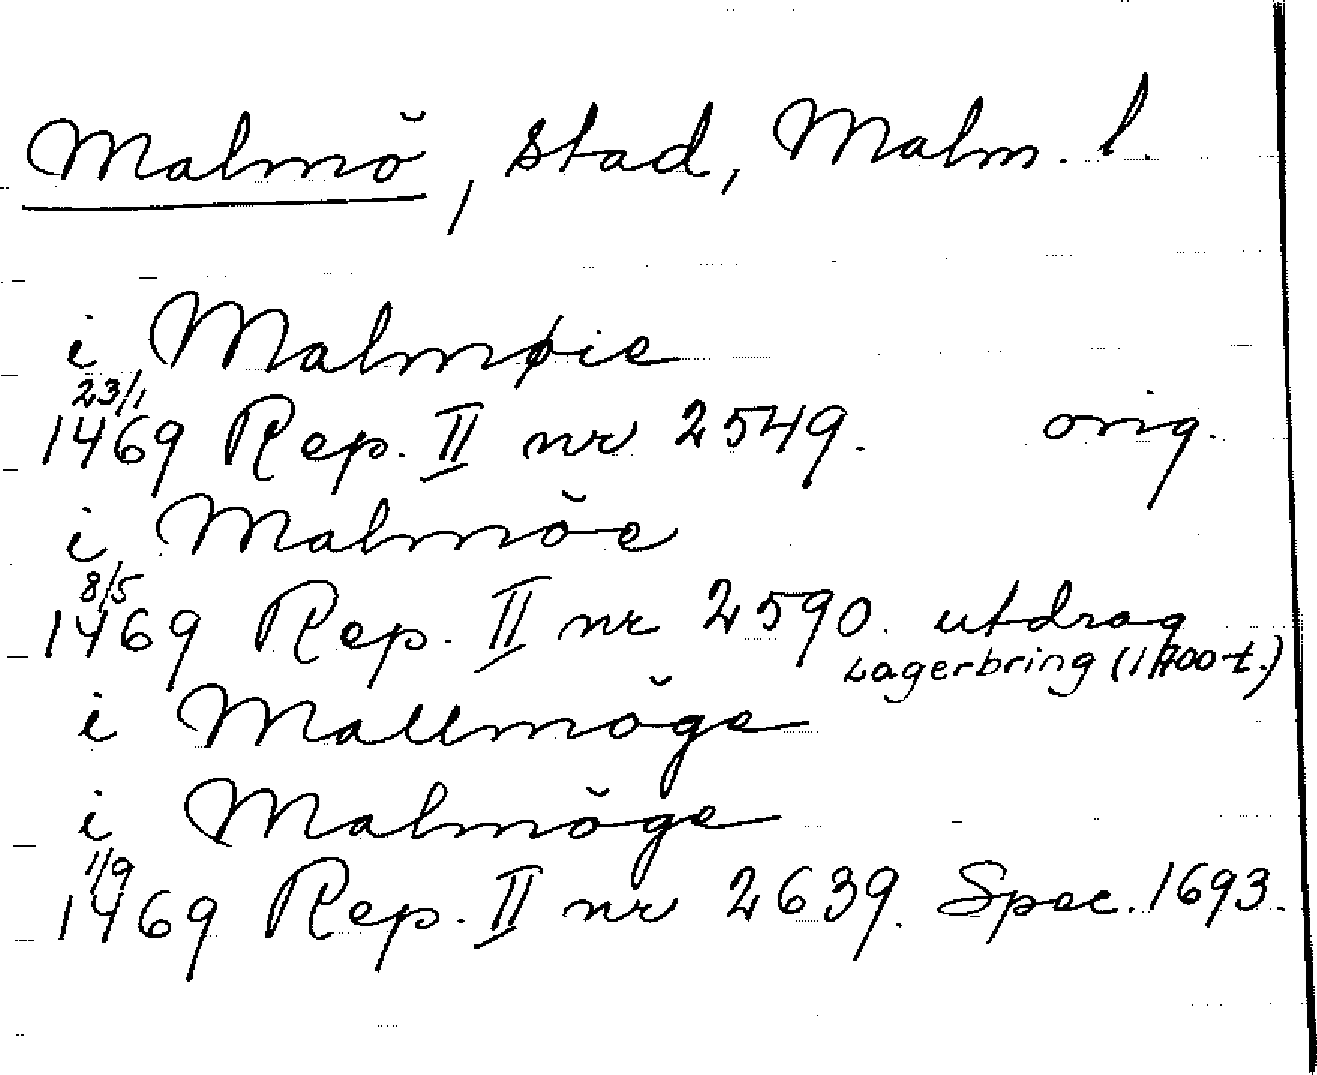 Malmö, stad, Malm. l.
i Malmøie
23/1
1469 Rep. II nr 2549. orig.
i Malmöe
8/5
1469 Rep. II nr 2590. utdrag
Lagerbring (1700-t.)
i Mallmöge
i Malmöge
1/9
1469 Rep. II nr 2639. Spec. 1693.